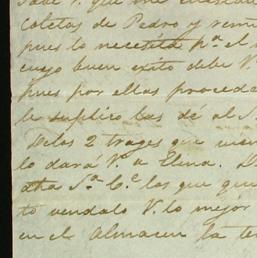 coletas de Pedro y remi
pues lo necesita pa. el
cuyo buen exito debe V.
pues por ellas proceda
le suplico las dé al S.
De los 2 trages que
lo dará Va. a Elena.
dha Sa. Ca. los que que
to vendalo V. lo mejor
en el Almacen la te